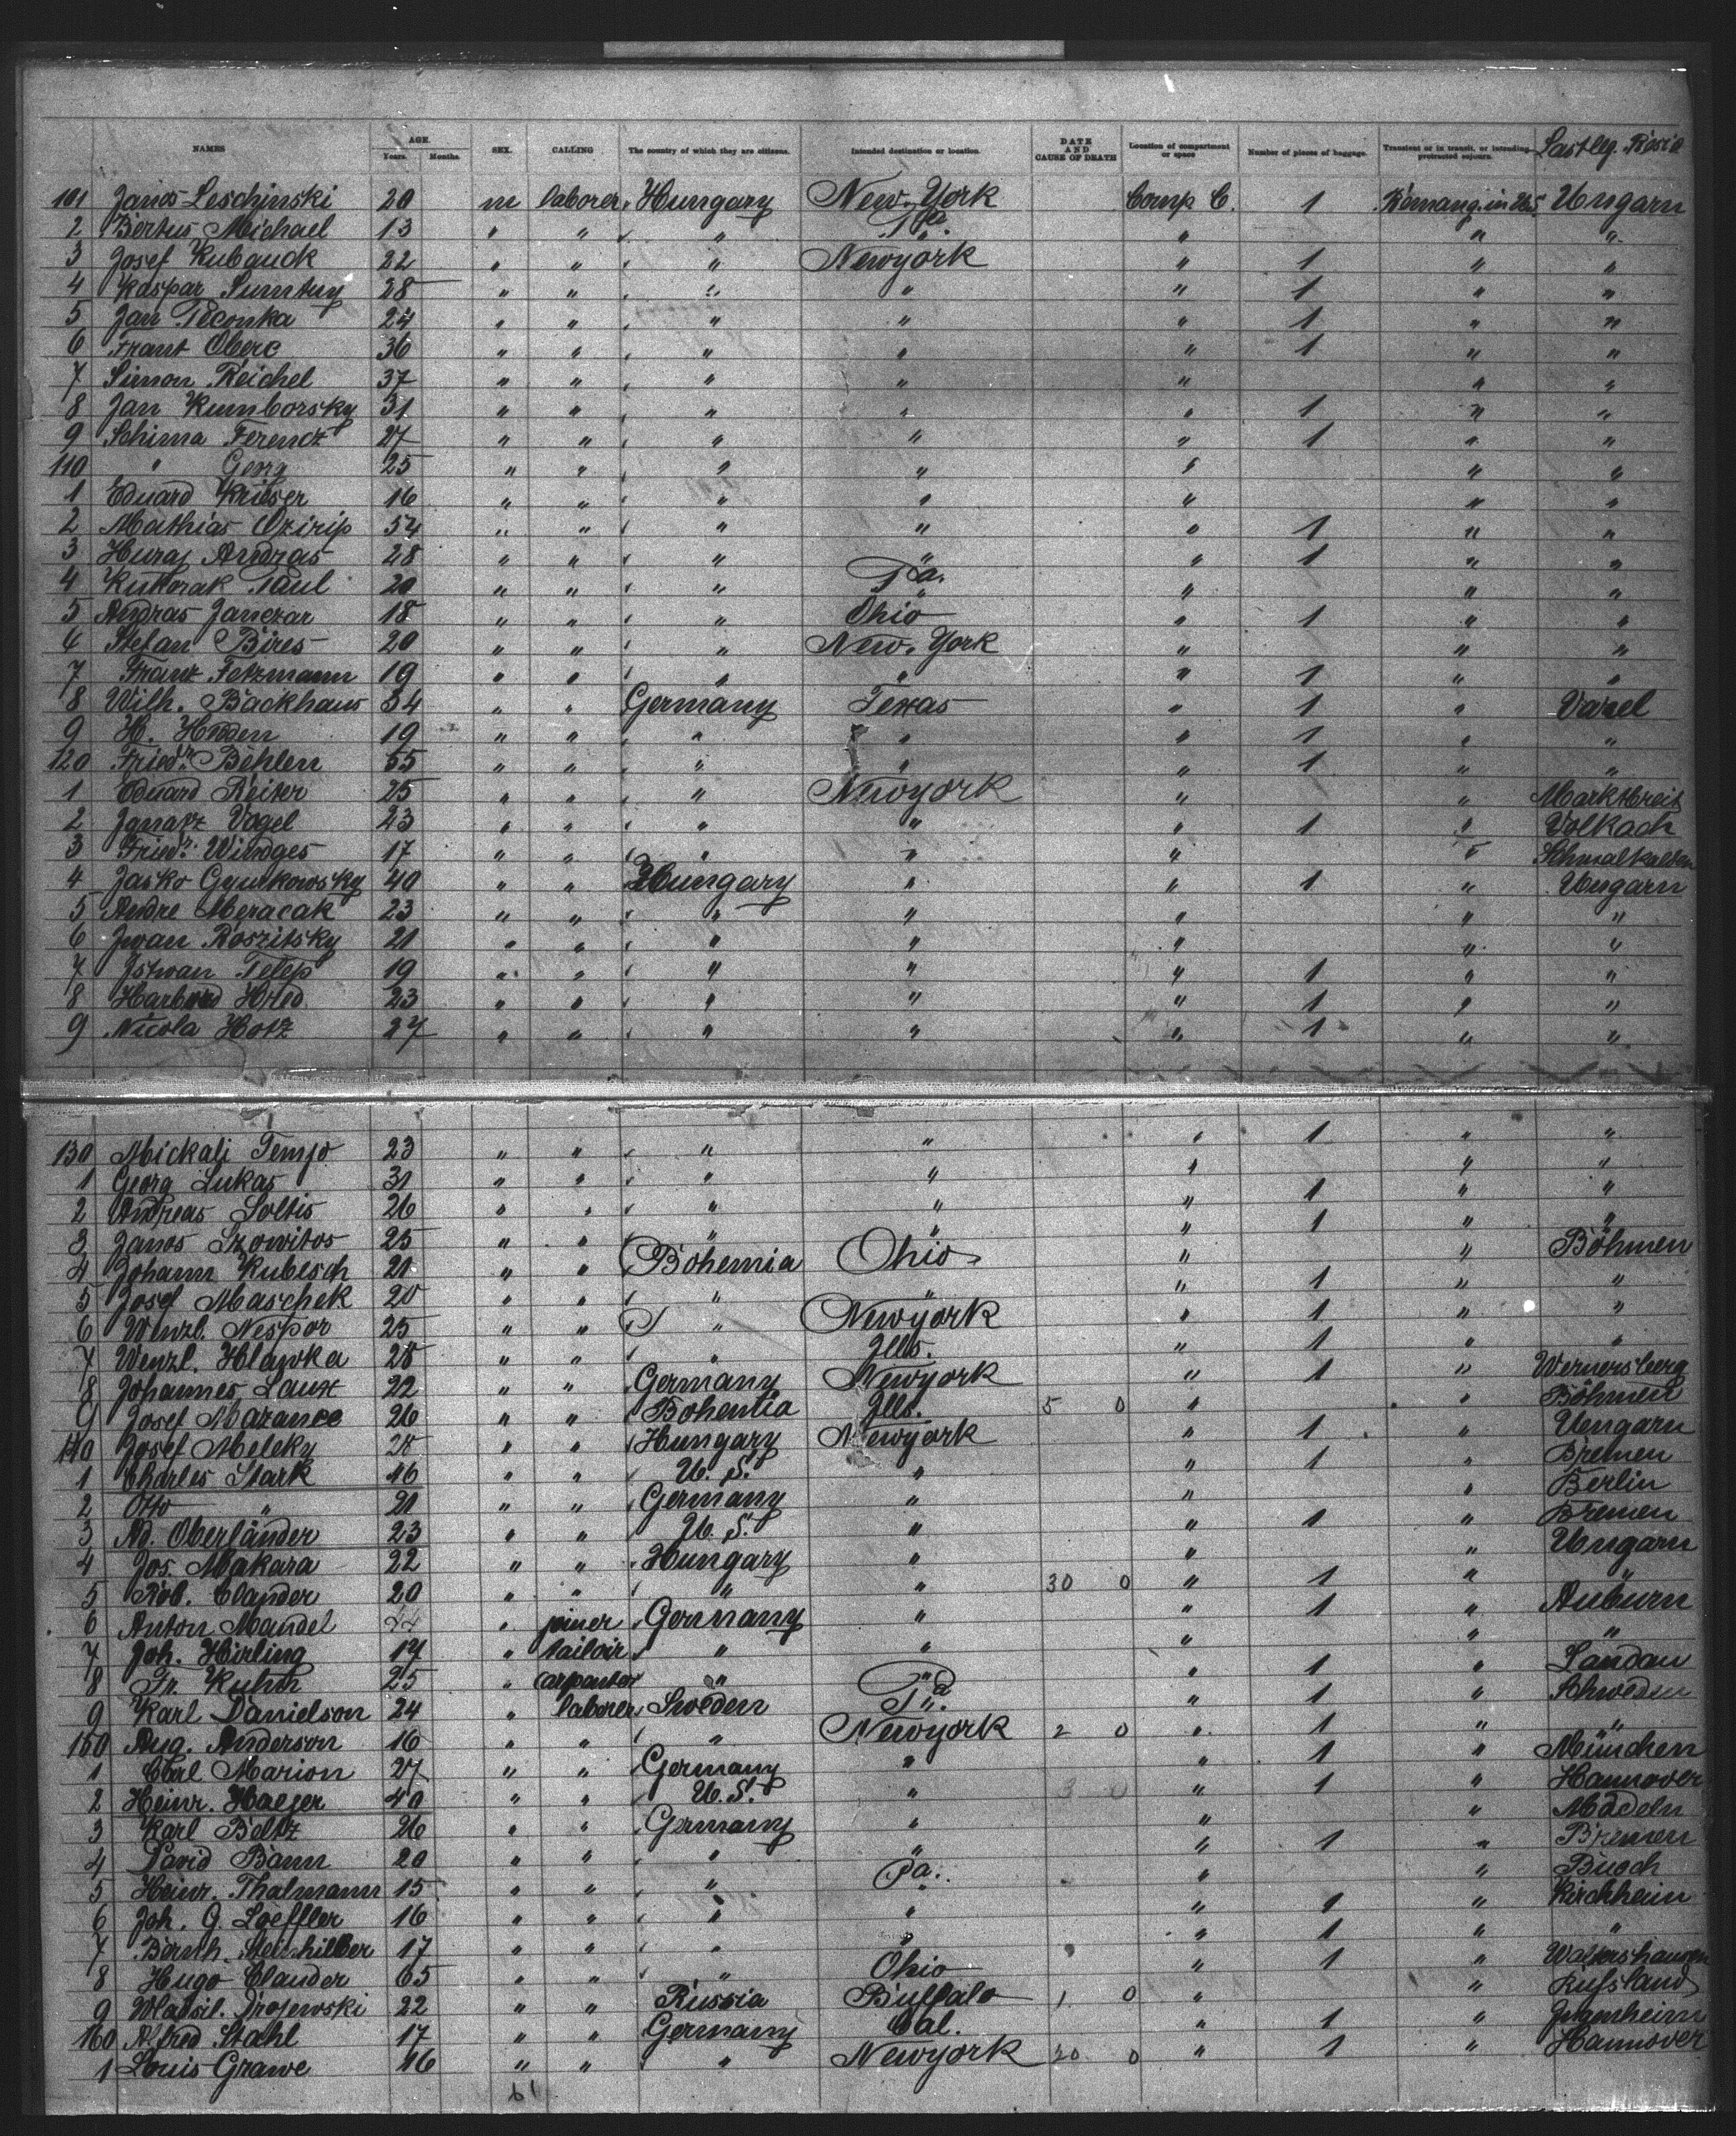 NAMES AGE. Years. Months. SEX. CALLING The country of which they are citizens. Intended destination or location. DATE AND CAUSE OF DEATH Location of compartment or space Number of pieces of baggage. Transient or in transit, or intending protracted sojourn. Last leg. Resid
101 Janos Leschinski 20 m laborer Hungary New-York Comp C. 1 Ungarn
2 Bertus Michael 13 " " " Pa. " " "
3 Josef Kubanck 22 " " " Newyork " 1 " "
4 Kaspar 28 " " " " " 1 " "
5 Jan Peconka 24 " " " " " 1 " "
6 Frant Oberc 36 " " " " " 1 " "
7 Simon Reichel 37 " " " " " " "
8 Jan Kumborsky 31 " " " " " 1 " "
9 Schima Ferencz 27 " " " " " 1 " "
110 " Georg 25 " " " " " " "
1 Eduard Krieser 16 " " " " " " "
2 Mathias Ozirip 54 " " " " " 1 " "
3 Huraj Andras 28 " " " " " 1 " "
4 Kukorak Paul 20 " " " Pa. " " "
5 Andras Janczar 18 " " " Ohio " 1 " "
6 Stefan Bires 20 " " " New-York " " "
7 Franz Fetzmann 19 " " " " " 1 " "
8 Wilh. Backhaus 34 " " Germany Texas " 1 " Varel
9 H. Hoden 19 " " " " " 1 " "
120 Friedr. Behlen 55 " " " " " 1 " "
1 Eduard Reiter 25 " " " Newyork " " Marktbreit
2 Ignatz Vogel 23 " " " " " 1 " Volkach
3 Friedr. Windges 17 " " " " " " Schmalkalden
4 Jasko Gymkowsky 40 " " Hungary " " 1 " Ungarn
5 Andre Meracak 23 " " " " " " "
6 Iwan Roszitsky 21 " " " " " " "
7 Istwan Telep 19 " " " " " 1 " "
8 Hred 23 " " " " " 1 " "
9 Nicola Hotz 27 " " " " " 1 " "
130 Mickali Tempo 23 " " " " " 1 " "
1 Georg Lukas 31 " " " " " " "
2 Andreas Soltis 26 " " " " " 1 " "
3 Janos Szowitos 25 " " " " " 1 " "
4 Johann Kubesch 21 " " Bohemia Ohio " " Böhmen
5 Josef Maschek 20 " " " " " 1 " "
6 Wenzl. Nespor 25 " " " Newyork " 1 " "
7 Wenzl. Hlawka 28 " " " Ills. " 1 " "
8 Johannes Laux 22 " " Germany Newyork " 1 " Wernersberg
9 Josef Mazance 26 " " Bohemia Ills. 5 0 " " Böhmen
140 Josef Meleky 28 " " Hungary Newyork " 1 " Ungarn
1 Charles Stark 46 " " U. S. " " 1 " Bremen
2 Otto " 21 " " Germany " " " Berlin
3 Ad. Oberländer 23 " " U. S. " " 1 " Bremen
4 Jos. Makara 22 " " Hungary " " " Ungarn
5 Rob. Clauder 20 " " " " 30 0 " 1 " "
6 Anton Mandel " joiner Germany " " 1 " Auburn
7 Joh. Hirling 17 " tailoir " " " " "
8 Fr. Kuhn 25 " carpanter " Pa " 1 " Landau
9 Karl Danielson 24 " laborer Sweden " " 1 " Schweden
150 Aug. Anderson 16 " " " Newyork 2 0 " 1 " "
1 Carl Marion 27 " " Germany " " 1 " München
2 Heinr. Haeger 40 " " U. S. " 3 0 " 1 " Hannover
3 Karl Beltz 26 " " Germany " " "
4 David Bann 20 " " " " " 1 " Bremen
5 Heinr. Thalmann 15 " " " Pa. " " Buoch
6 Joh. G. Loeffler 16 " " " " " 1 " Kirchheim
7 Bernh. Steinhilber 17 " " " " " 1 " "
8 Hugo Clauder 65 " " " Ohio " 1 " Waltershausen
9 Wladsil. Drojewski 22 " " Russia Buffalo 1 0 " " Russland
160 Alfred Stahl 17 " " Germany Cal. " 1 " Jugenheim
1 Louis Grawe 46 " " " Newyork 20 0 " 1 " Hannover
61